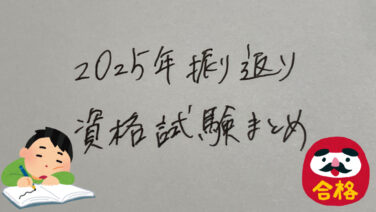 2025年振り返り
資格試験まとめ
合格